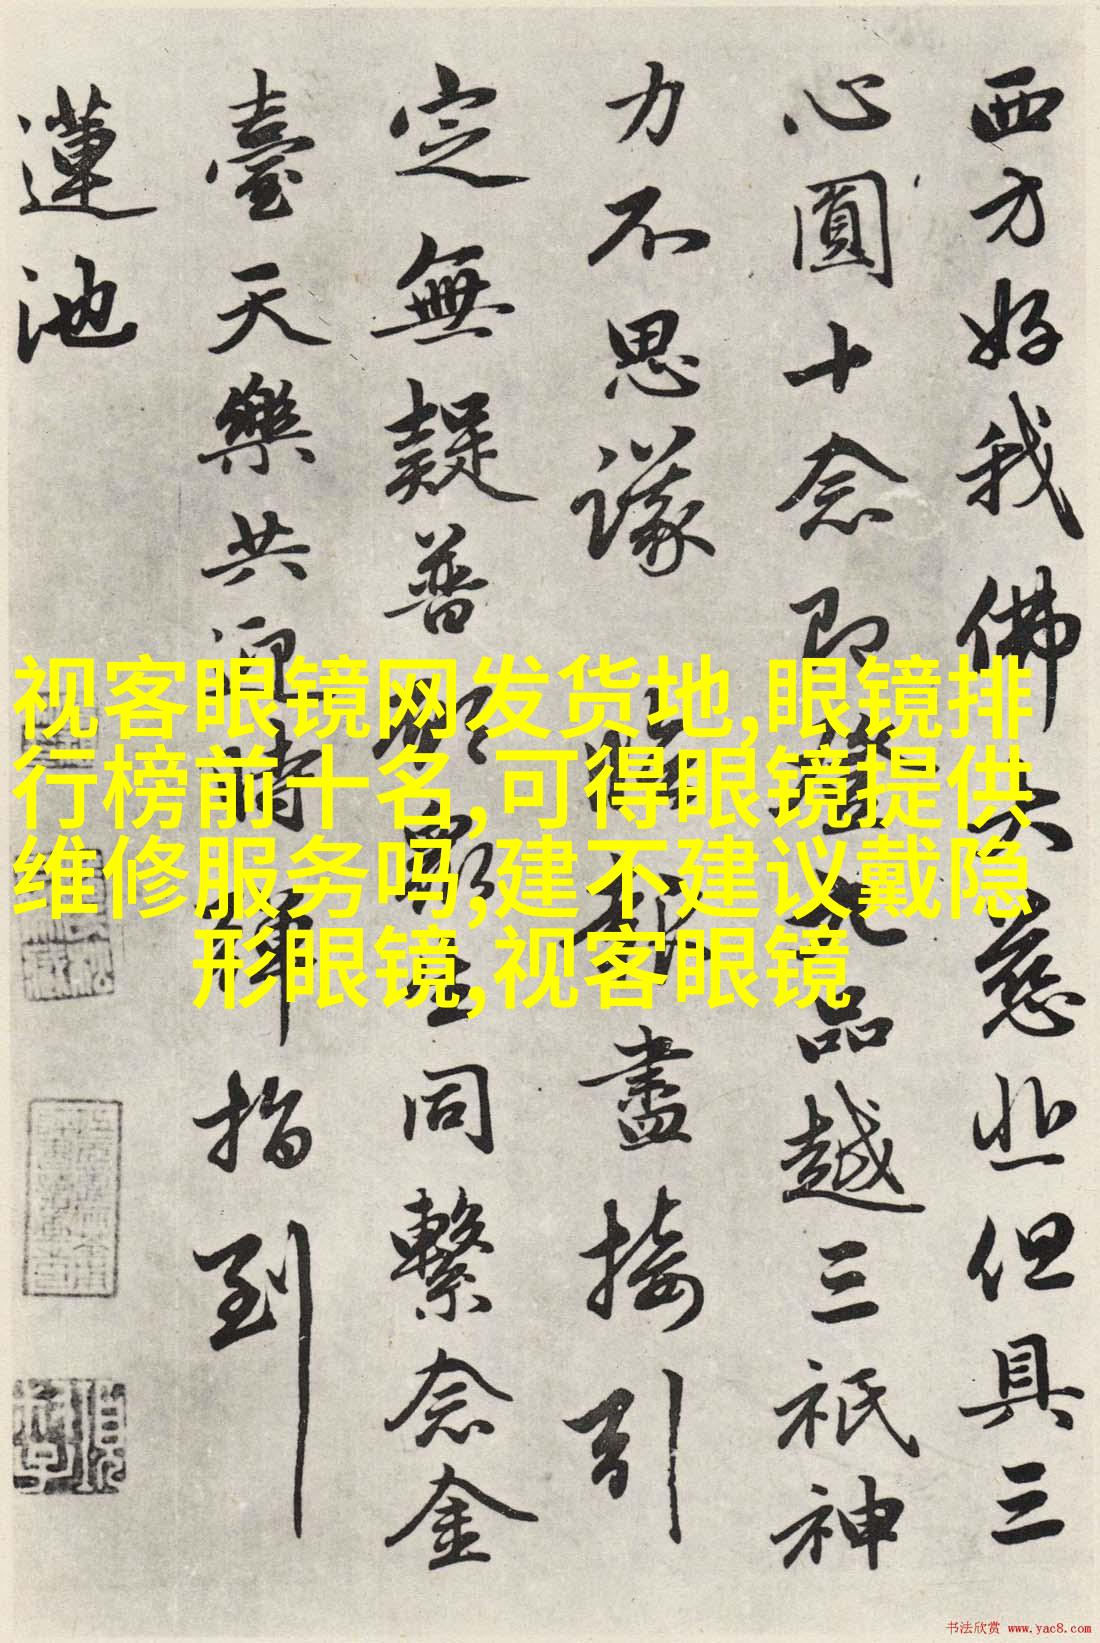 西方好我佛大慈悲但具三
心圓十念即登九品越三祇神
力不思議盡接引
定無疑普願眾生同繫念金
臺天樂共迎時彈指到
蓮池
视客眼镜网发货地,眼镜排
行榜前十名,可得眼镜提供
维修服务吗,建不建议戴隐
形眼镜,视客眼镜
书法欣赏 www.yac8.com